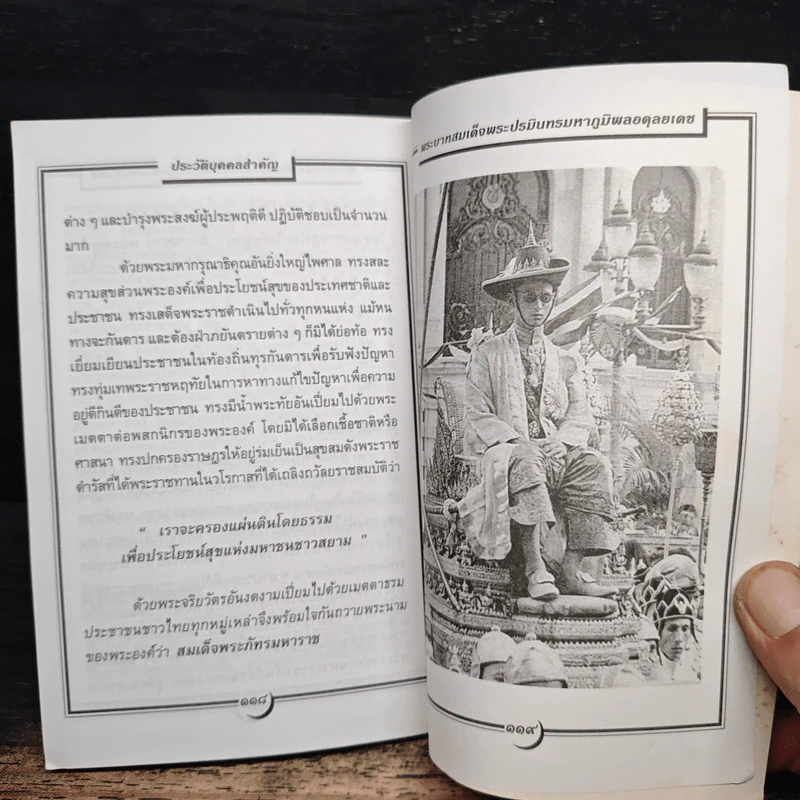 ประวัติบุคคลสำคัญ
ต่าง ๆ และบำรุงพระสงฆ์ผู้ประพฤติดี ปฏิบัติชอบเป็นจำนวน
มาก
ด้วยพระมหากรุณาธิคุณอันยิ่งใหญ่ไพศาล ทรงสละ
ความสุขส่วนพระองค์เพื่อประโยชน์สุขของประเทศชาติและ
ประชาชน ทรงเสด็จพระราชดำเนินไปทั่วทุกหนแห่ง แม้หน
ทางจะกันดาร และต้องฝ่าภยันตรายต่าง ๆ ก็มิได้ย่อท้อ ทรง
เยี่ยมเยียนประชาชนในท้องถิ่นทุรกันดารเพื่อรับฟังปัญหา
ทรงทุ่มเทพระราชหฤทัยในการหาทางแก้ไขปัญหาเพื่อความ
อยู่ดีกินดีของประชาชน ทรงมีน้ำพระทัยอันเปี่ยมไปด้วยพระ
เมตตาต่อพสกนิกรของพระองค์ โดยมิได้เลือกเชื้อชาติหรือ
ศาสนา ทรงปกครองราษฎรให้อยู่ร่มเย็นเป็นสุขสมดังพระราช
ดำรัสที่ได้พระราชทานในวโรกาสที่ได้เถลิงถวัลยราชสมบัติว่า
“ เราจะครองแผ่นดินโดยธรรม
เพื่อประโยชน์สุขแห่งมหาชนชาวสยาม ”
ด้วยพระจริยวัตรอันงดงามเปี่ยมไปด้วยเมตตาธรรม
ประชาชนชาวไทยทุกหมู่เหล่าจึงพร้อมใจกันถวายพระนาม
ของพระองค์ว่า สมเด็จพระภัทรมหาราช
๑๑๘
พระบาทสมเด็จพระปรมินทรมหาภูมิพลอดุลยเดช
๑๑๙